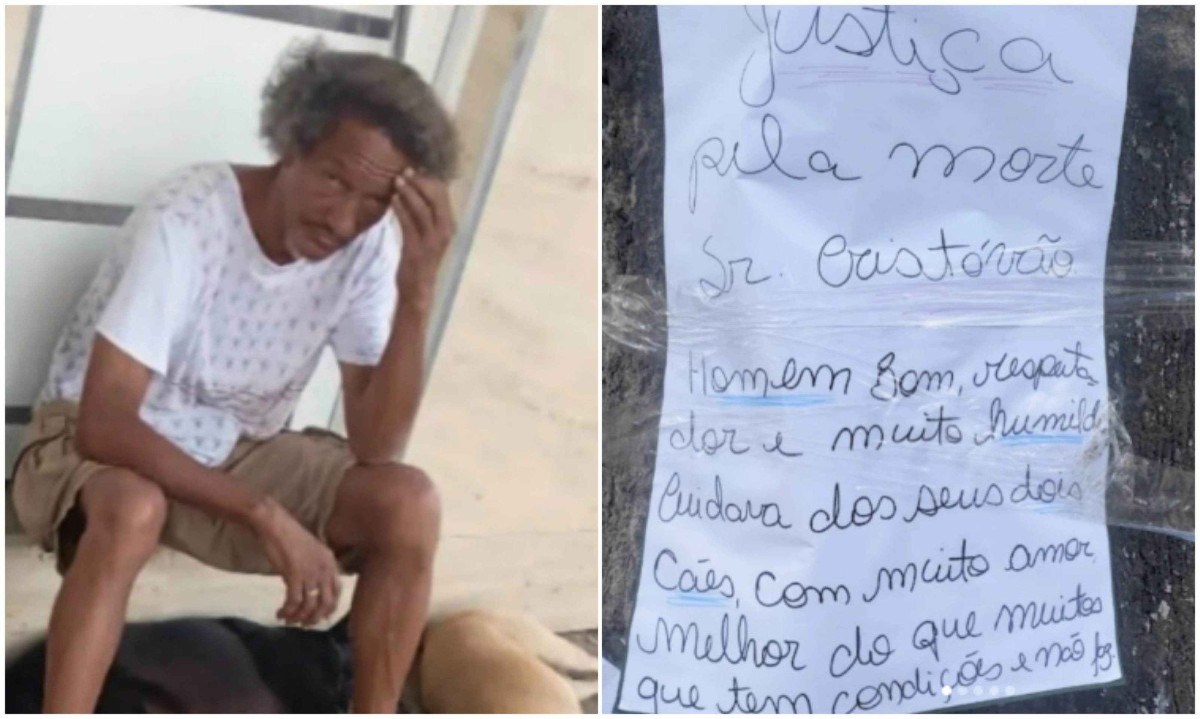 Justiça
pela morte
Sr. Cristóvão
Homem Bom, respeita
dor e muito humild
Cuidava dos seus dois
Cães, com muito amor
melhor do que muitos
que tem condições e não faz